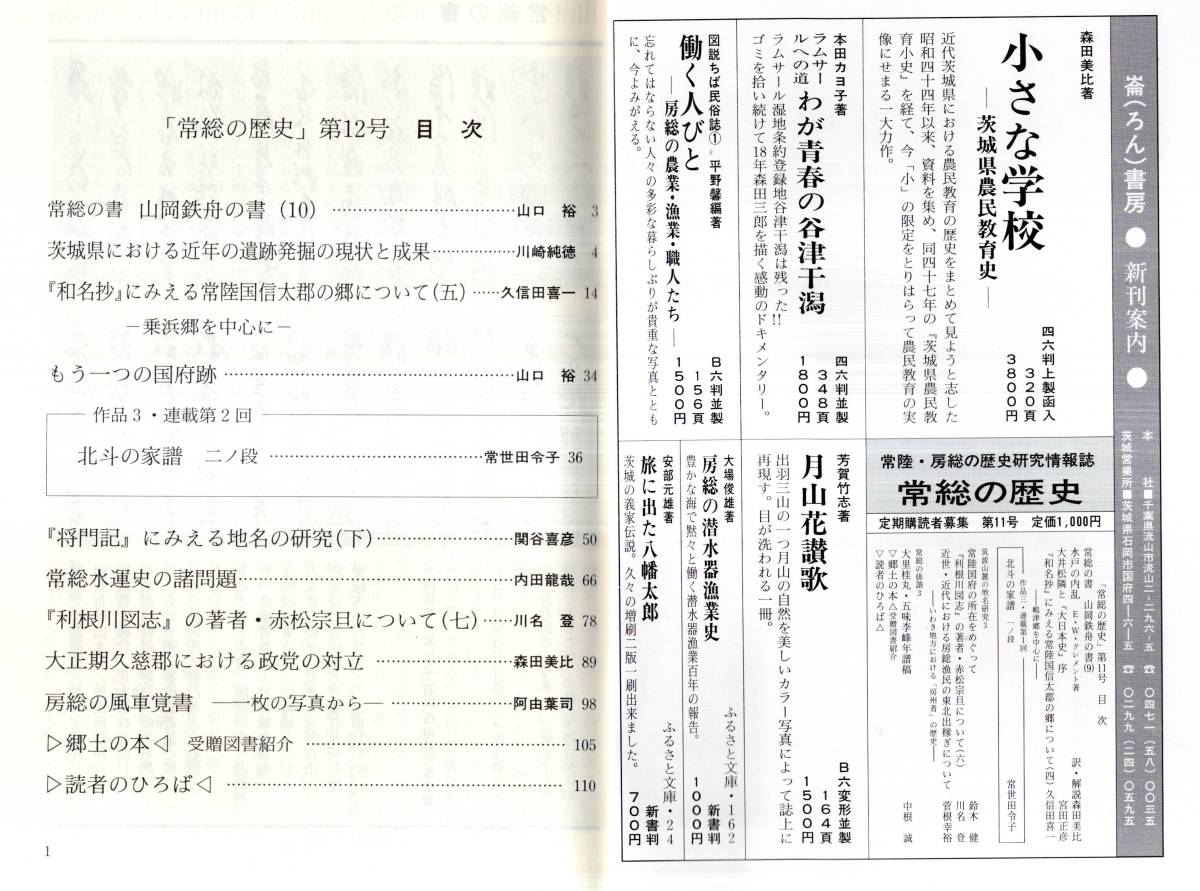 「常総の歴史」第12号 目 次
常総の書 山岡鉄舟の書(10) ……………………山口 裕 3
茨城県における近年の遺跡発掘の現状と成果…………川崎純徳 4
『和名抄』にみえる常陸国信太郡の郷について(五) ……久信田喜一 14
―乗浜郷を中心に―
もう一つの国府跡 ……………………………………山口 裕 34
作品3・連載第2回
北斗の家譜 二ノ段 ……………………………常世田令子 36
『将門記』にみえる地名の研究(下)…………………関谷喜彦 50
常総水運史の諸問題……………………………………内田龍哉 66
『利根川図志』の著者・赤松宗旦について(七)……川名 登 78
大正期久慈郡における政党の対立 …………………森田美比 89
房総の風車覚書 ―一枚の写真から― ………………阿由葉司 98
▷郷土の本◁ 受贈図書紹介 ……………………………… 105
▷読者のひろば◁ ………………………………………… 110
1
崙(ろん)書房 ● 新刊案内 ●
本 社■千葉県流山市流山二-二九六-五 ☎ 〇四七一(五八)〇〇三五
茨城営業所■茨城県石岡市国府四―六―五 ☎ 〇二九九(二四)〇五九五
森田美比著
小さな学校
―茨城県農民教育史―
四六判上製函入
320頁
3800円
近代茨城県における農民教育の歴史をまとめて見ようと志した
昭和四十四年以来、資料を集め、同四十七年の『茨城県農民教
育小史』を経て、今「小」の限定をとりはらって農民教育の実
像にせまる一大力作。
本田カヨ子著
ラムサー
ルへの道
わが青春の谷津干潟
四六判並製
348頁
1800円
ラムサール湿地条約登録地谷津干潟は残った!!
ゴミを拾い続けて18年森田三郎を描く感動のドキメンタリー。
図説ちば民俗誌① 平野馨編著
働く人びと
―房総の農業・漁業・職人たち―
B六判並製
156頁
1500円
忘れてはならない人々の多彩な暮らしぶりが貴重な写真ととも
に、今よみがえる。
常陸・房総の歴史研究情報誌
常総の歴史
定期購読者募集 第11号 定価1,000円
「常総の歴史」第11号 目 次
常総の書 山岡鉄舟の書(9)
水戸の内乱 E・W・クレメント著 訳・解説森田美比
大井松隣と『大日本史』序 宮田正彦
『和名抄』にみえる常陸国信太郡の郷について(四) 久信田喜一
―嶋津郷を中心に―
作品三・連載第1回
北斗の家譜 一ノ段 常世田令子
筑波山麓の地名研究3
常陸国府の所在をめぐって 鈴木 健
『利根川図志』の著者・赤松宗旦について(六) 川名 登
近世・近代における房総漁民の東北出稼ぎについて 菅根幸裕
―いわき地方における「房州者」の歴史―
常総の俳譜3
大里桂丸・五味李峰年譜稿 中根 誠
▽郷土の本△受贈図書紹介
▽読者のひろば△
芳賀竹志著
月山花讃歌
B六変形並製
164頁
1500円
出羽三山の一つ月山の自然を美しいカラー写真によって誌上に
再現す。目が洗われる一冊。
大場俊雄著
房総の潜水器漁業史
ふるさと文庫・162
新書判
1000円
豊かな海で黙々と働く潜水器漁業百年の報告。
安部元雄著
旅に出た八幡太郎
ふるさと文庫・24
新書判
700円
茨城の義家伝説。久々の増刷二版一刷出来ました。